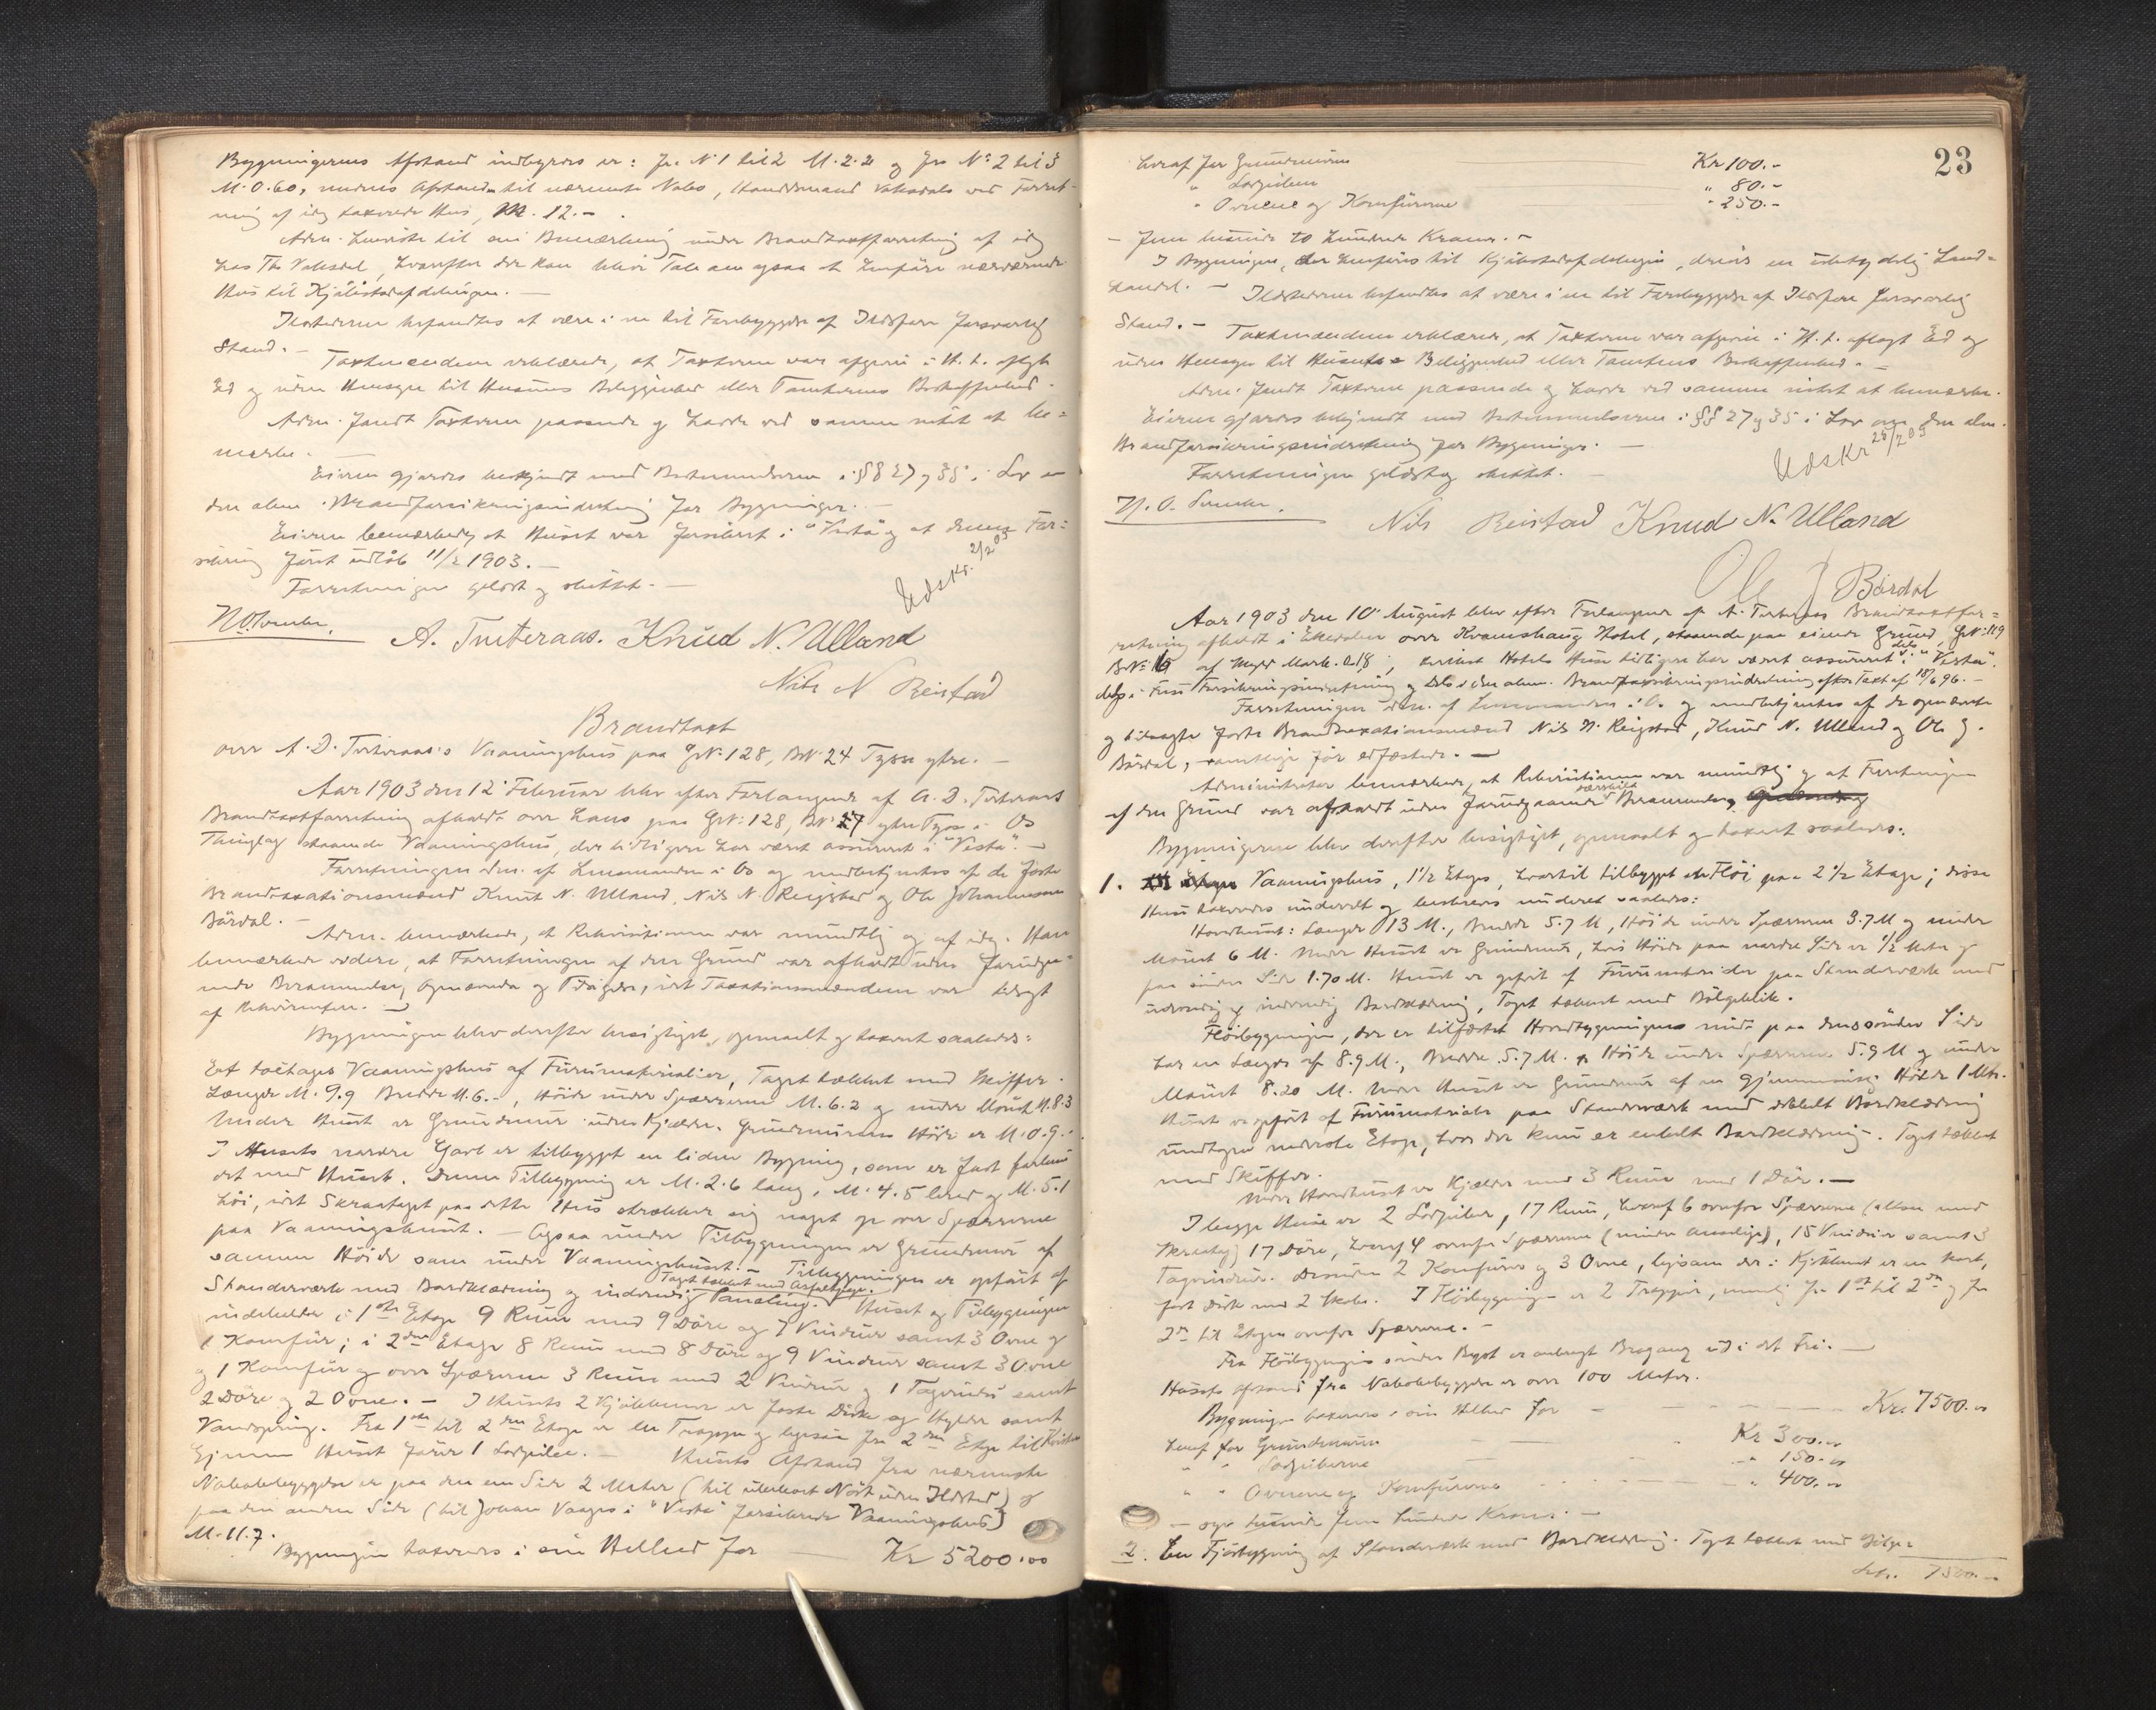 Bygningernes Afstand indbyrdes er: fra No 1 til 2 M. 2.2 og fra No 2 til 3
M. 0.60, medens Afstanden til nærmeste Nabo, ved Forret-
ning af idag taxerede Hus, M. 12.-
Adm. henviste til sin Bemærkning under Brandtaxtforretning af idag
hos Th. Vaksdal, hvorefter der kan blive Tale om ogsaa at henføre nærværende
Hus til Kjøbstadafdelingen. —
Ildstederne befandtes at være i en til Forebyggelse af Ildsfare forsvarlig
Stand. — Taxtmændene erklærede, at Taxterne var afgivne i H. t. aflagt
Ed og uden Hensyn til Husenes Beliggenhed eller Tomternes Beskaffenhed.
Adm. fandt Taxterne passende og havde ved samme intet at be=
mærke. —
Eieren gjordes bekjendt med Bestemmelserne i §§ 27 og 35 i Lov om
den alm. Brandforsikringsindretning for Bygninger. —
Eieren bemærkede, at Huset var forsikret i "Vesta" og at denne For=
sikring først udløb 11/2 1903. —
Forretningen oplæst og sluttet. —
Udskr. 2/2 03
A. Tveteraas. Knud N. Ulland
Nils N Reistad
Brandtaxt
over A. D. Tveteraas's Vaaningshus paa GrN. 128, BrN. 24 Tysse ytre. —
Aar 1903 den 12 Februar blev efter Forlangende af A. D. Tveteraas
Brandtaxtforretning afholdt over hans paa GrN: 128, BrN. 27 ytre Tysse i Os
Thinglag staaende Vaaningshus, der tidligere har været assureret i "Vesta". —
Forretningen adm. af Lensmanden i Os og medbetjentes af de faste
Brandtaxationsmænd Knut N. Ulland, Nils N. Reigstad og Ole Johannessen
Bårdal. —
Adm. bemærkede, at Rekvisitionen var mundtlig og af idag. Han
bemærkede videre, at Forretningen af den Grund var afholdt uden forudgaa=
ende Berammelse, Opnævnelse og Tilsigelse, idet Taxationsmændene var tilsagt
af Rekvirenten. —
Bygningen blev derefter besigtiget, opmaalt og taxeret saaledes:
Et toetages Vaaningshus af Furumaterialier, Taget tækket med Skiffer.
Længde M. 9.9 Bredde M. 6.-, Høide under Spærrerne M. 6.2 og under Mønet M. 8.3
Under Huset er Grundmur uden Kjælder. Grundmurens Høide er M. 0.9.-
I Husets nordre Gavl er tilbygget en liden Bygning, som er fast forbun
det med Huset. Denne Tilbygning er M. 2.6 lang, M. 4.5 bred og M. 5.1
høi, idet Skraataget paa dette Hus strækker sig noget op over Spærrerne
paa Vaaningshuset. — Ogsaa under Tilbygningen er Grundmur af
samme Høide som under Vaaningshuset. — Tilbygningen er opført af
Standerværk med Bordklædning og indvendig Paneling. Taget tækket med Asfaltpap. Huset og Tilbygningen
indeholder i 1ste Etage 9 Rum med 9 Døre og 7 Vinduer samt 3 Ovne og
1 Komfur; i 2den Etage 8 Rum med 8 Døre og 9 Vinduer samt 3 Ovne
og 1 Komfur og over Spærrerne 3 Rum med 2 Vinduer og 1 Tagvindu samt
2 Døre og 2 Ovne. — I Husets 2 Kjøkkener er faste Diske og Hylder samt
Vandspring. Fra 1ste til 2den Etage er en Trappe og ligesaa fra 2den Etage til Kvisten
Gjennem Huset fører 1 Lodpibe. — Husets Afstand fra nærmeste
Nabobebyggelse er paa den ene Side 2 Meter (til ubeboet Nøst uden Ildsted) og
paa den anden Side (til Johan Vaages i "Vesta" forsikrede Vaaningshus)
M. 11.7.
Bygningen taxeredes i sin Helhed for — Kr 5200.00
23
hvoraf for Grundmuren Kr 100.-
" Lodpiben " 80.-
" Ovnene og Komfurerne " 250.-
— fem tusinde to hundrede Kroner. —
I Bygningen, der henføres til Kjøbstadafdelingen, drives en ubetydelig Land=
handel. — Ildstederne befandtes at være i en til Forebyggelse af Ildsfare forsvarlig
Stand. — Taxtmændene erklærede, at Taxterne var afgivne i H. t. aflagt Ed og
uden Hensyn til Husets Beliggenhed eller Tomtens Beskaffenhed. —
Adm. fandt Taxterne passende og havde ved samme intet at bemærke.
Eieren gjordes bekjendt med Bestemmelserne i §§ 27 og 35 i Lov om den alm.
Brandforsikringsindretning for Bygninger. —
Udskr 25/2 03
Forretningen oplæst og sluttet. —
Nils Reistad Knud N. Ulland
Ole J Bårdal
Aar 1903 den 10 August blev efter Forlangende af A. Tveteraas Brandtaxtfor=
retning afholdt i Eikedalen over Kvamshaug Hotel, staaende paa eiende Grund, GrN: 119
BrN: 16 af Skyld Mark. 0.18, hvilket Hotels Huse tidligere har været assureret dels i "Vesta".
dels i Fusa Forsikringsindretning og dels i den alm. Brandforsikringsindretning efter Taxt af 18/6 96. —
Forretningen adm. af Lensmanden i Os og medbetjentes af de opnævnte
og tilsagte faste Brandtaxationsmænd Nils N. Reigstad, Knud N. Ulland og Ole J.
Bårdal, samtlige før edfæstede. —
Administrator bemærkede, at Rekvisitionen var mundtlig og at Forretningen
af den Grund var afholdt uden forudgaaende særskilt Berammelse
Bygningerne blev derefter besigtiget, opmaalt og taxeret saaledes:
1. Vaaningshus, 1½ Etages, hvortil tilbygget en Fløi paa 2½ Etage; disse
Huse taxeredes underet og beskrives underet saaledes:
Hovedhuset: Længde 13 M., Bredde 5.7 M, Høide under Spærrerne 3.7 M og under
Mønet 6 M. Under Huset er Grundmur, hvis Høide paa nordre Side er ½ Meter og
paa søndre Side 1.70 M. Huset er opført af Furumaterialer paa Standerværk med
udvendig og indvendig Bordklædning, Taget tækket med Bølgeblik.
Fløibygningen, der er tilfæstet Hovedbygningens midt paa dens søndre Side
har en Længde af 8.9 M., Bredde 5.7 M. Høide under Spærrerne 5.9 M og under
Mønet 8.20 M. Under Huset er Grundmur af en gjennemsnitlig Høide 1 Mtr.
Huset er opført af Furumaterialer paa Standerværk med dobbelt Bordklædning
undtagen nederste Etage, hvor der kun er enkelt Bordklædning. Taget tækket
med Skiffer.
Under Hovedhuset er Kjælder med 3 Rum med 1 Dør. —
I begge Huse er 2 Lodpiber, 17 Rum, hvoraf 6 ovenfor Spærrerne (alle med
Skraatag) 17 Døre, hvoraf 4 ovenfor Spærrerne (mindre anselige), 15 Vinduer samt 3
Tagvinduer. Desuden 2 Komfurer og 3 Ovne, ligesom der i Kjøkkenet er en stort,
fast Disk med 2 Skabe. I Fløibygningen er 2 Trapper, nemlig fra 1ste til 2den og fra
2den til Etagen ovenfor Spærrerne. —
Fra Fløibygningens søndre er anbragt Brogang ud i det Fri. —
Husets Afstand fra Nabobebyggelse er over 100 Meter.
Bygningen taxeredes i sin Helhed for — Kr. 7500.00
hvoraf for Grundmuren Kr 300.00
" " Lodpiberne " 150.00
" " Ovnene og Komfurerne " 400.00
— syv tusinde fem hundrede Kroner. —
2. En Fjøsbygning af Standerværk med Bordklædning. Taget tækket med Bølge=
Lat. 7500.-